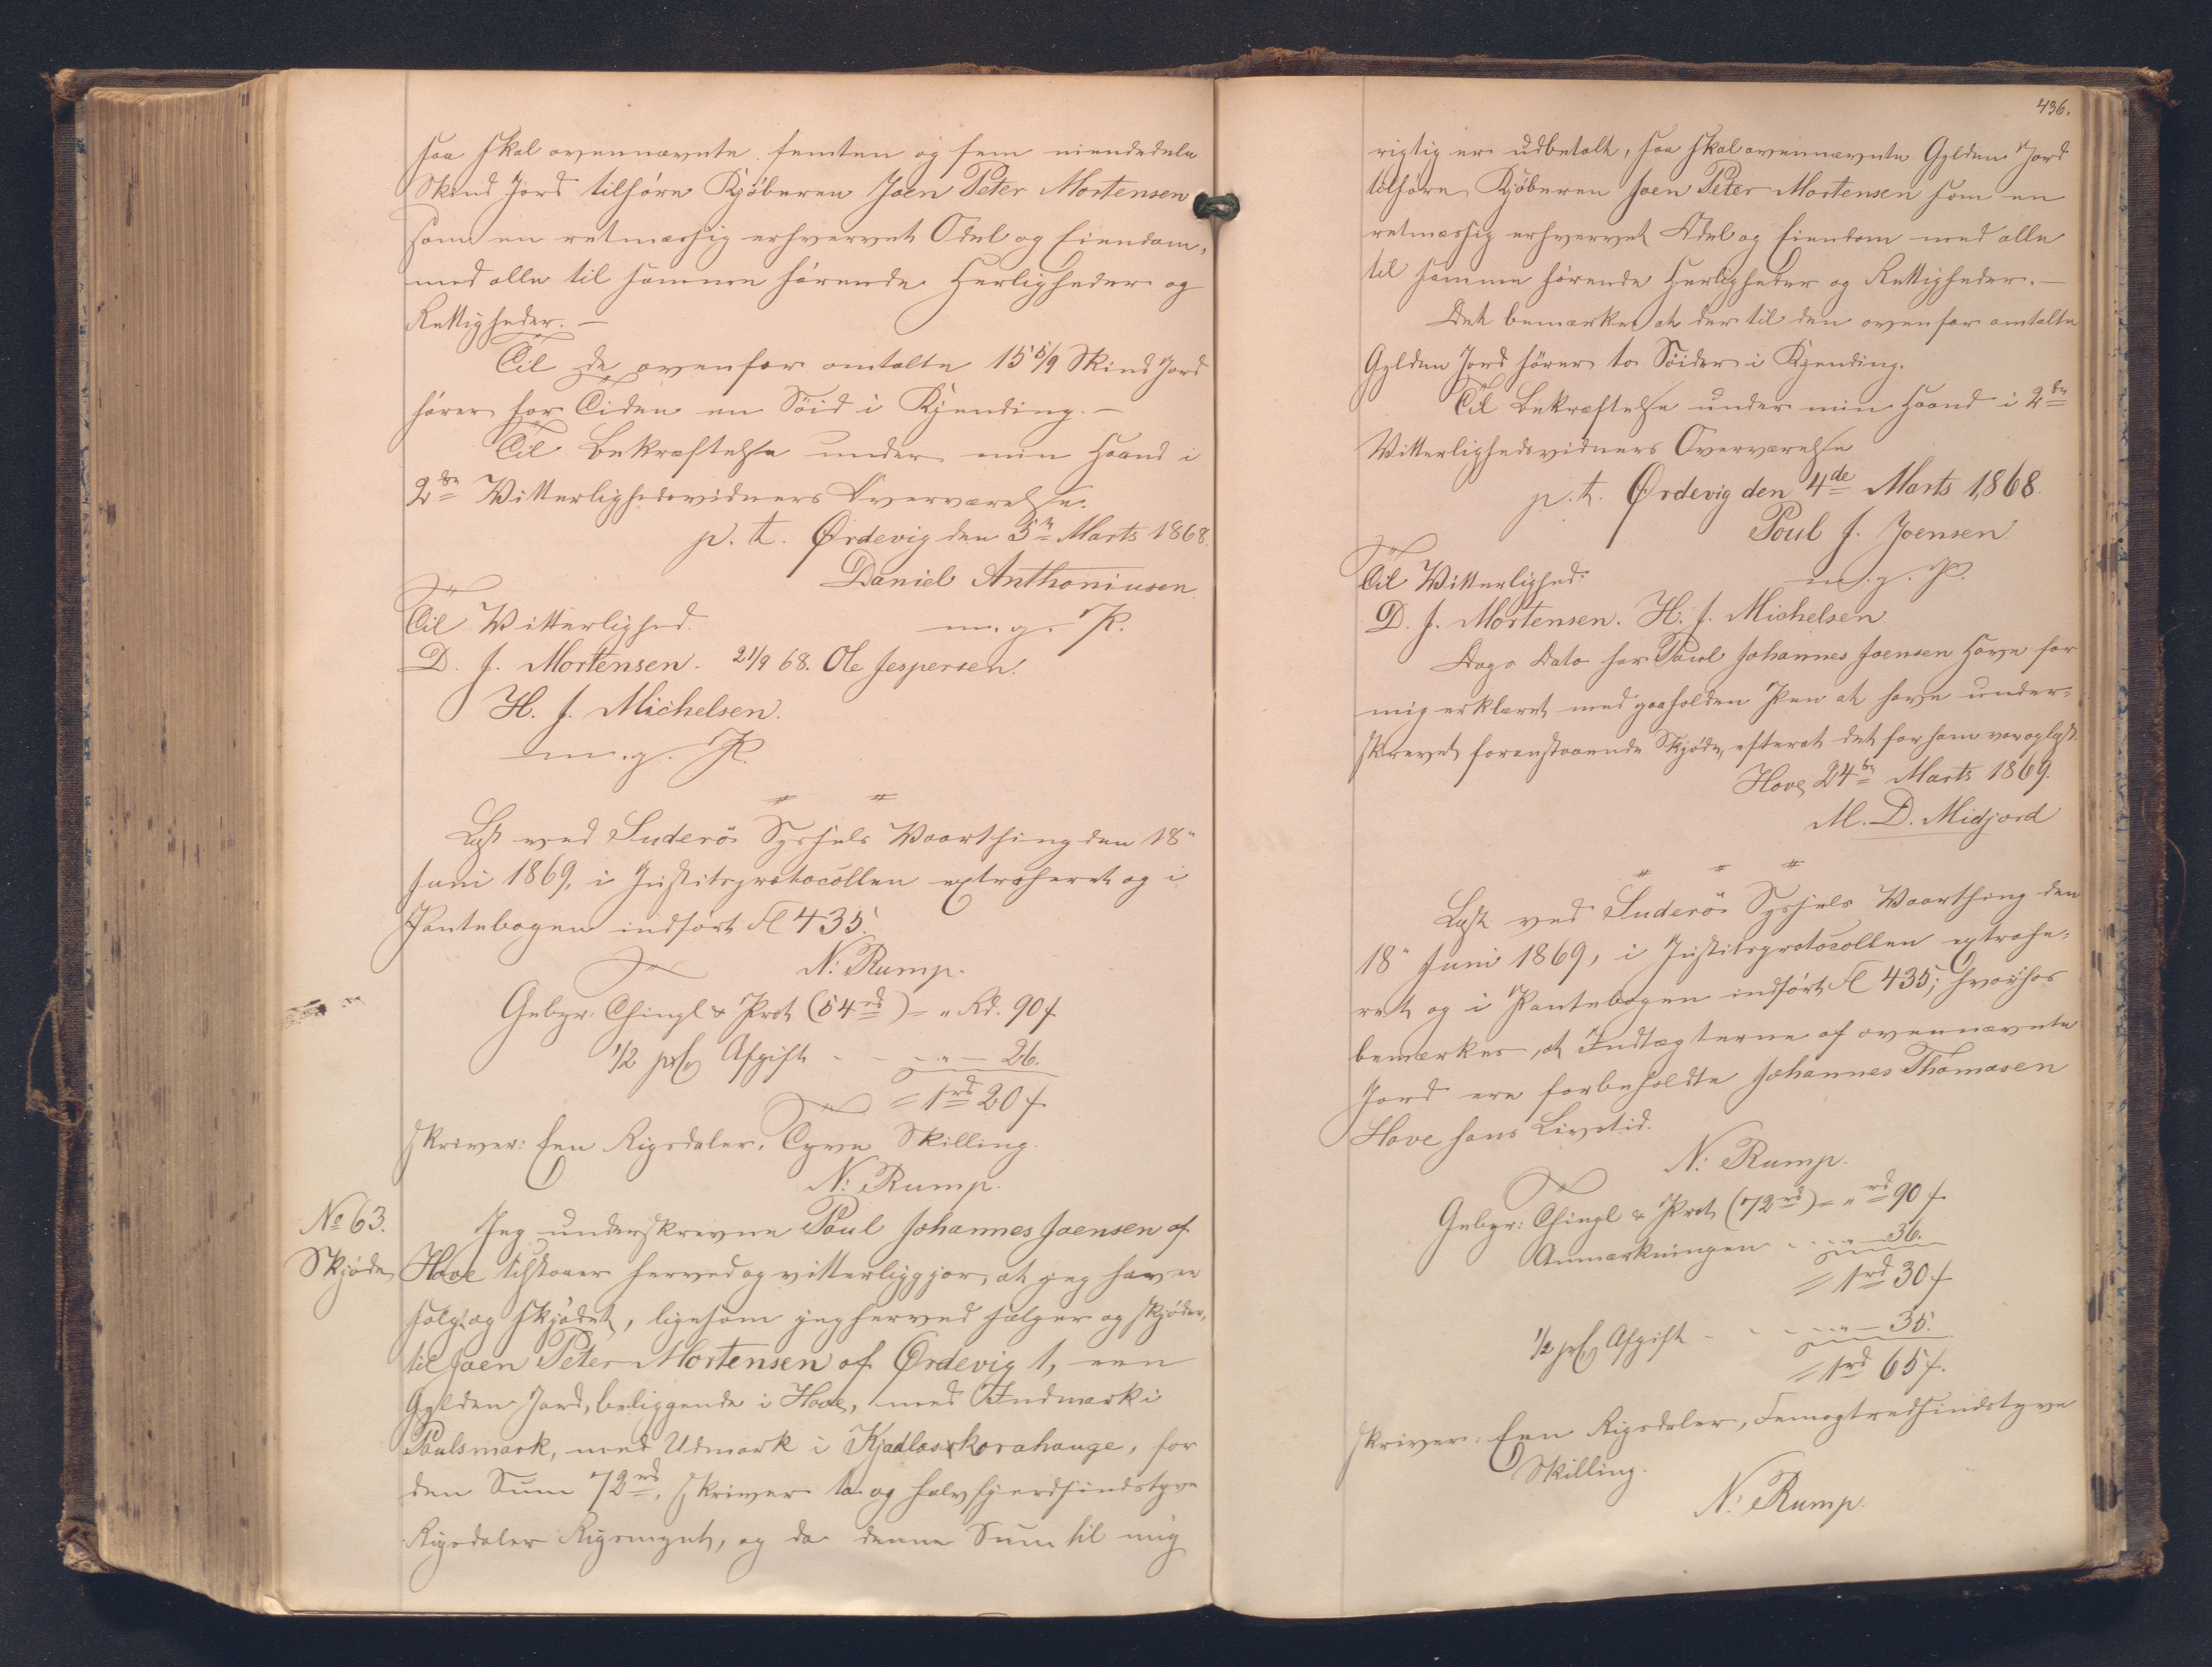 saa skal ovennævnte femten og fem niendedele
Skind Jord tilhøre Kjøberen Joen Peter Mortensen
som en retmæssig erhvervet Odel og Eiendom,
med alle til samme hørende Herligheder og
Rettigheder. —
Til de ovenfor omtalte 15 5/9 Skind Jord
hører for Tiden en Söid i Kjending. —
Til Bekræftelse under min Haand i
2de Vitterlighedsvidners Overværelse.
p. t. Ørdevig den 5te Marts 1868.
Daniel Anthoniusen
Til Vitterlighed. m. g. P.
D. J. Mortensen. 21/9 68. Ole Jespersen.
H. J. Michelsen.
m. g. P.
Læst ved Suderö Syssels Vaarthing den 18"
Juni 1869, i Justitsprotocollen extraheret og i
Pantebogen indført Fl 435.
N: Rump.
Gebyr: Thingl & Prot (54 rd) = " Rd. 90 f
1/2 pCt Afgift - - - " — 26.
= 1 rd 20 f
skriver: Een Rigsdaler, Tyve Skilling.
N: Rump.
No 63.
Skjøde
Jeg underskrevne Poul Johannes Joensen af
Hove tilstaaer herved og vitterliggjør, at jeg haver
solgt og skjødet, ligesom jeg herved sælger og skjøder,
til Joen Peter Mortensen af Ørdevig 1, een
Gylden Jord, beliggende i Hove, med Indmark i
Poulsmark, med Udmark i Kjadlaskorahauge, for
den Sum 72 rd, skriver to og halvfjerdsindstyve
Rigsdaler Rigsmynt, og da denne Sum til mig
436.
rigtig er udbetalt, saa skal ovennævnte Gylden Jord
tilhøre Kjøberen Joen Peter Mortensen som en
retmæssig erhvervet Odel og Eiendom med alle
til samme hørende Herligheder og Rettigheder. —
Det bemærkes at der til den ovenfor omtalte
Gylden Jord hører to Söider i Kjending.
Til Bekræftelse under min Haand i 2de
Vitterlighedsvidners Overværelse
p. t. Ørdevig den 4de Marts 1868.
Poul J. Joensen.
Til Vitterlighed: m. g. P.
D. J. Mortensen. H. J. Michelsen
Dags Dato har Poul Johannes Joensen Hove for
mig erklæret med paaholden Pen at have under-
skrevet foranstaaende Skjøde, efterat det for ham var oplæst.
Hove, 24de Marts 1869.
M. D. Midjord
Læst ved Suderö Syssels Vaarthing den
18" Juni 1869, i Justitsprotocollen extrahe-
ret og i Pantebogen indført Fl 435; hvorhos
bemærkes, at Indtægterne af ovennævnte
Jord ere forbeholdte Johannes Thomasen
Hove hans Livstid.
N: Rump.
Gebyr: Thingl & Prot (72 rd) = " rd 90 f
Anmærkningen - - " — 36.
= 1 rd 30 f
1/2 pCt Afgift - - - " — 35.
= 1 rd 65 f.
skriver: Een Rigsdaler, Femogtredsindstyve
Skilling.
N: Rump.